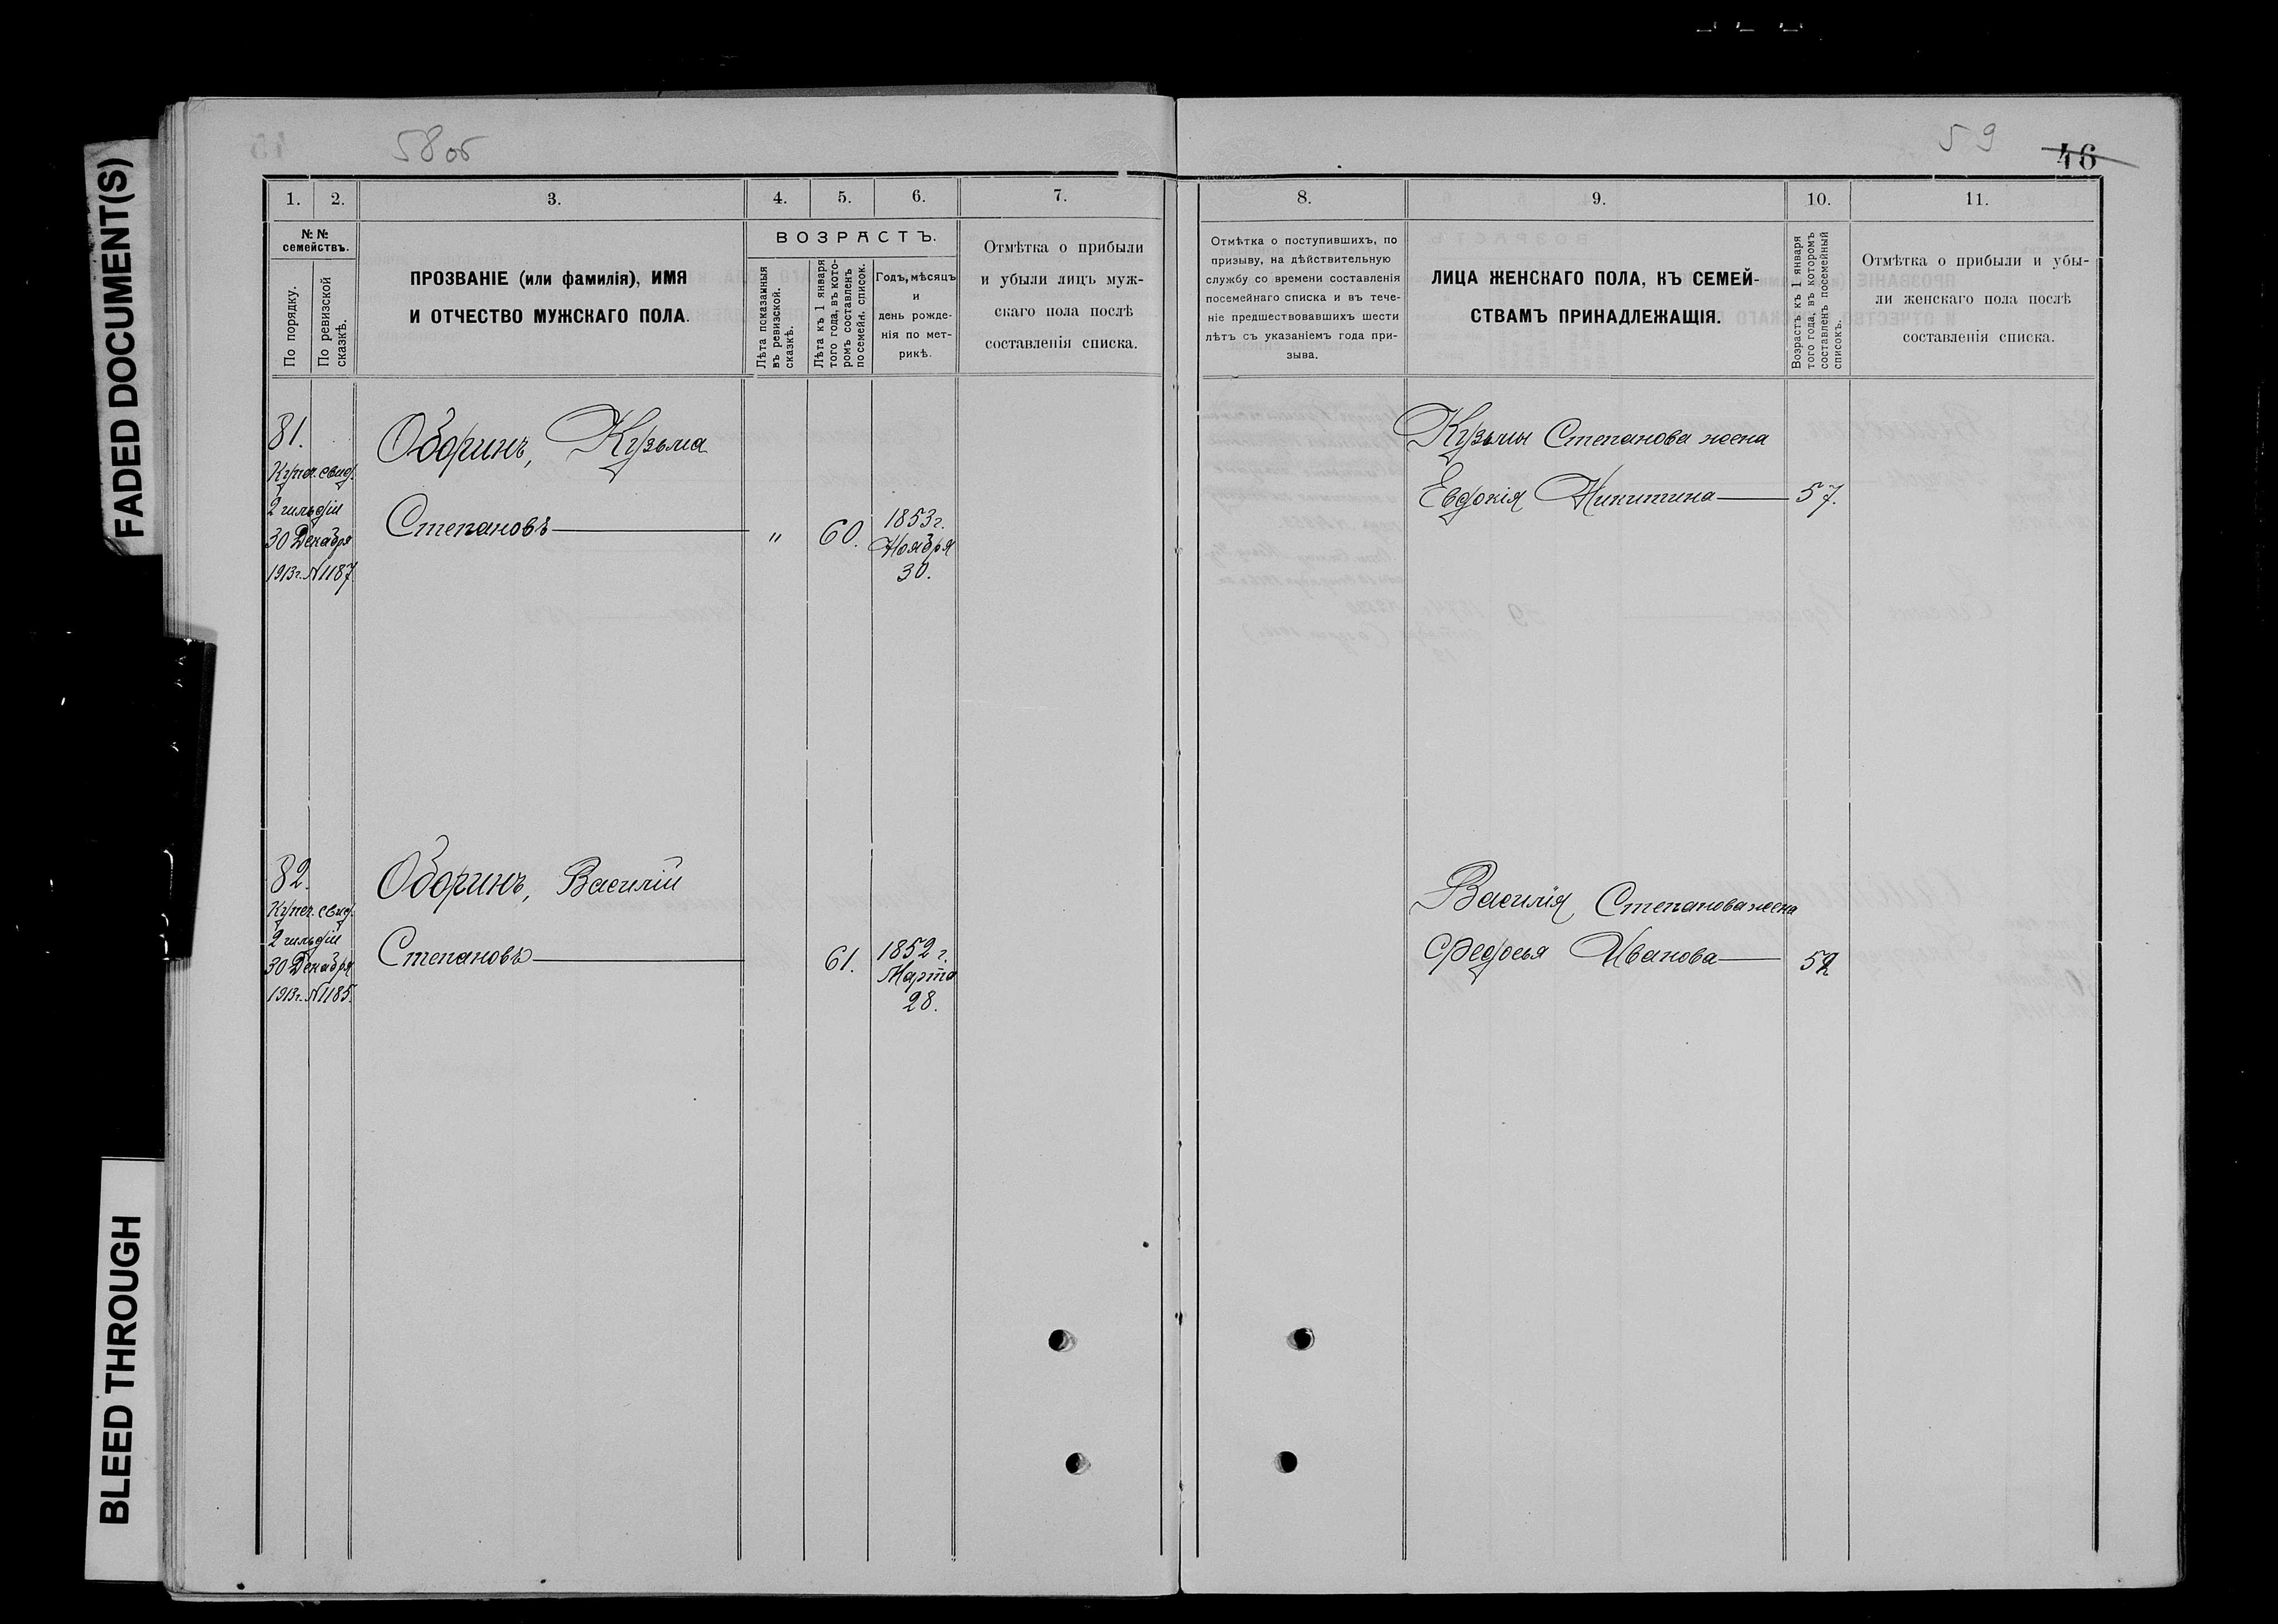 FADED DOCUMENT(S)
BLEED THROUGH
58 об
1. 2. 3. 4. 5. 6. 7.
№ №
семействъ.
По порядку.
По ревизской
сказкѣ.
ПРОЗВАНІЕ (или фамилія), ИМЯ
И ОТЧЕСТВО МУЖСКАГО ПОЛА.
ВОЗРАСТЪ.
Лѣта показанныя
въ ревизской
сказкѣ.
Лѣта къ 1 января
того года, въ кото-
ромъ составленъ
посемейн. список.
Годъ, мѣсяцъ
и
день рожде-
нія по мет-
рикѣ.
Отмѣтка о прибыли
и убыли лицъ муж-
скаго пола послѣ
составленія списка.
81.
Купеч. свид.
2 гильдіи
30 Декабря
1913 г. № 1187
Оборинъ, Кузьма
Степановъ
" 60.
1853 г.
Ноября
30.
82.
Купеч. свид.
2 гильдіи
30 Декабря
1913 г. № 1185.
Оборинъ, Василій
Степановъ
61.
1852 г.
Марта
28.
59
46
8. 9. 10. 11.
Отмѣтка о поступившихъ, по
призыву, на дѣйствительную
службу со времени составленія
посемейнаго списка и въ тече-
ніе предшествовавшихъ шести
лѣтъ съ указаніемъ года при-
зыва.
ЛИЦА ЖЕНСКАГО ПОЛА, КЪ СЕМЕЙ-
СТВАМЪ ПРИНАДЛЕЖАЩІЯ.
Возрастъ къ 1 января
того года, въ которомъ
составленъ посемейный
списокъ.
Отмѣтка о прибыли и убы-
ли женскаго пола послѣ
составленія списка.
Кузьмы Степанова жена
Евдокія Никитина 57.
Василія Степанова жена
Федосья Иванова 52